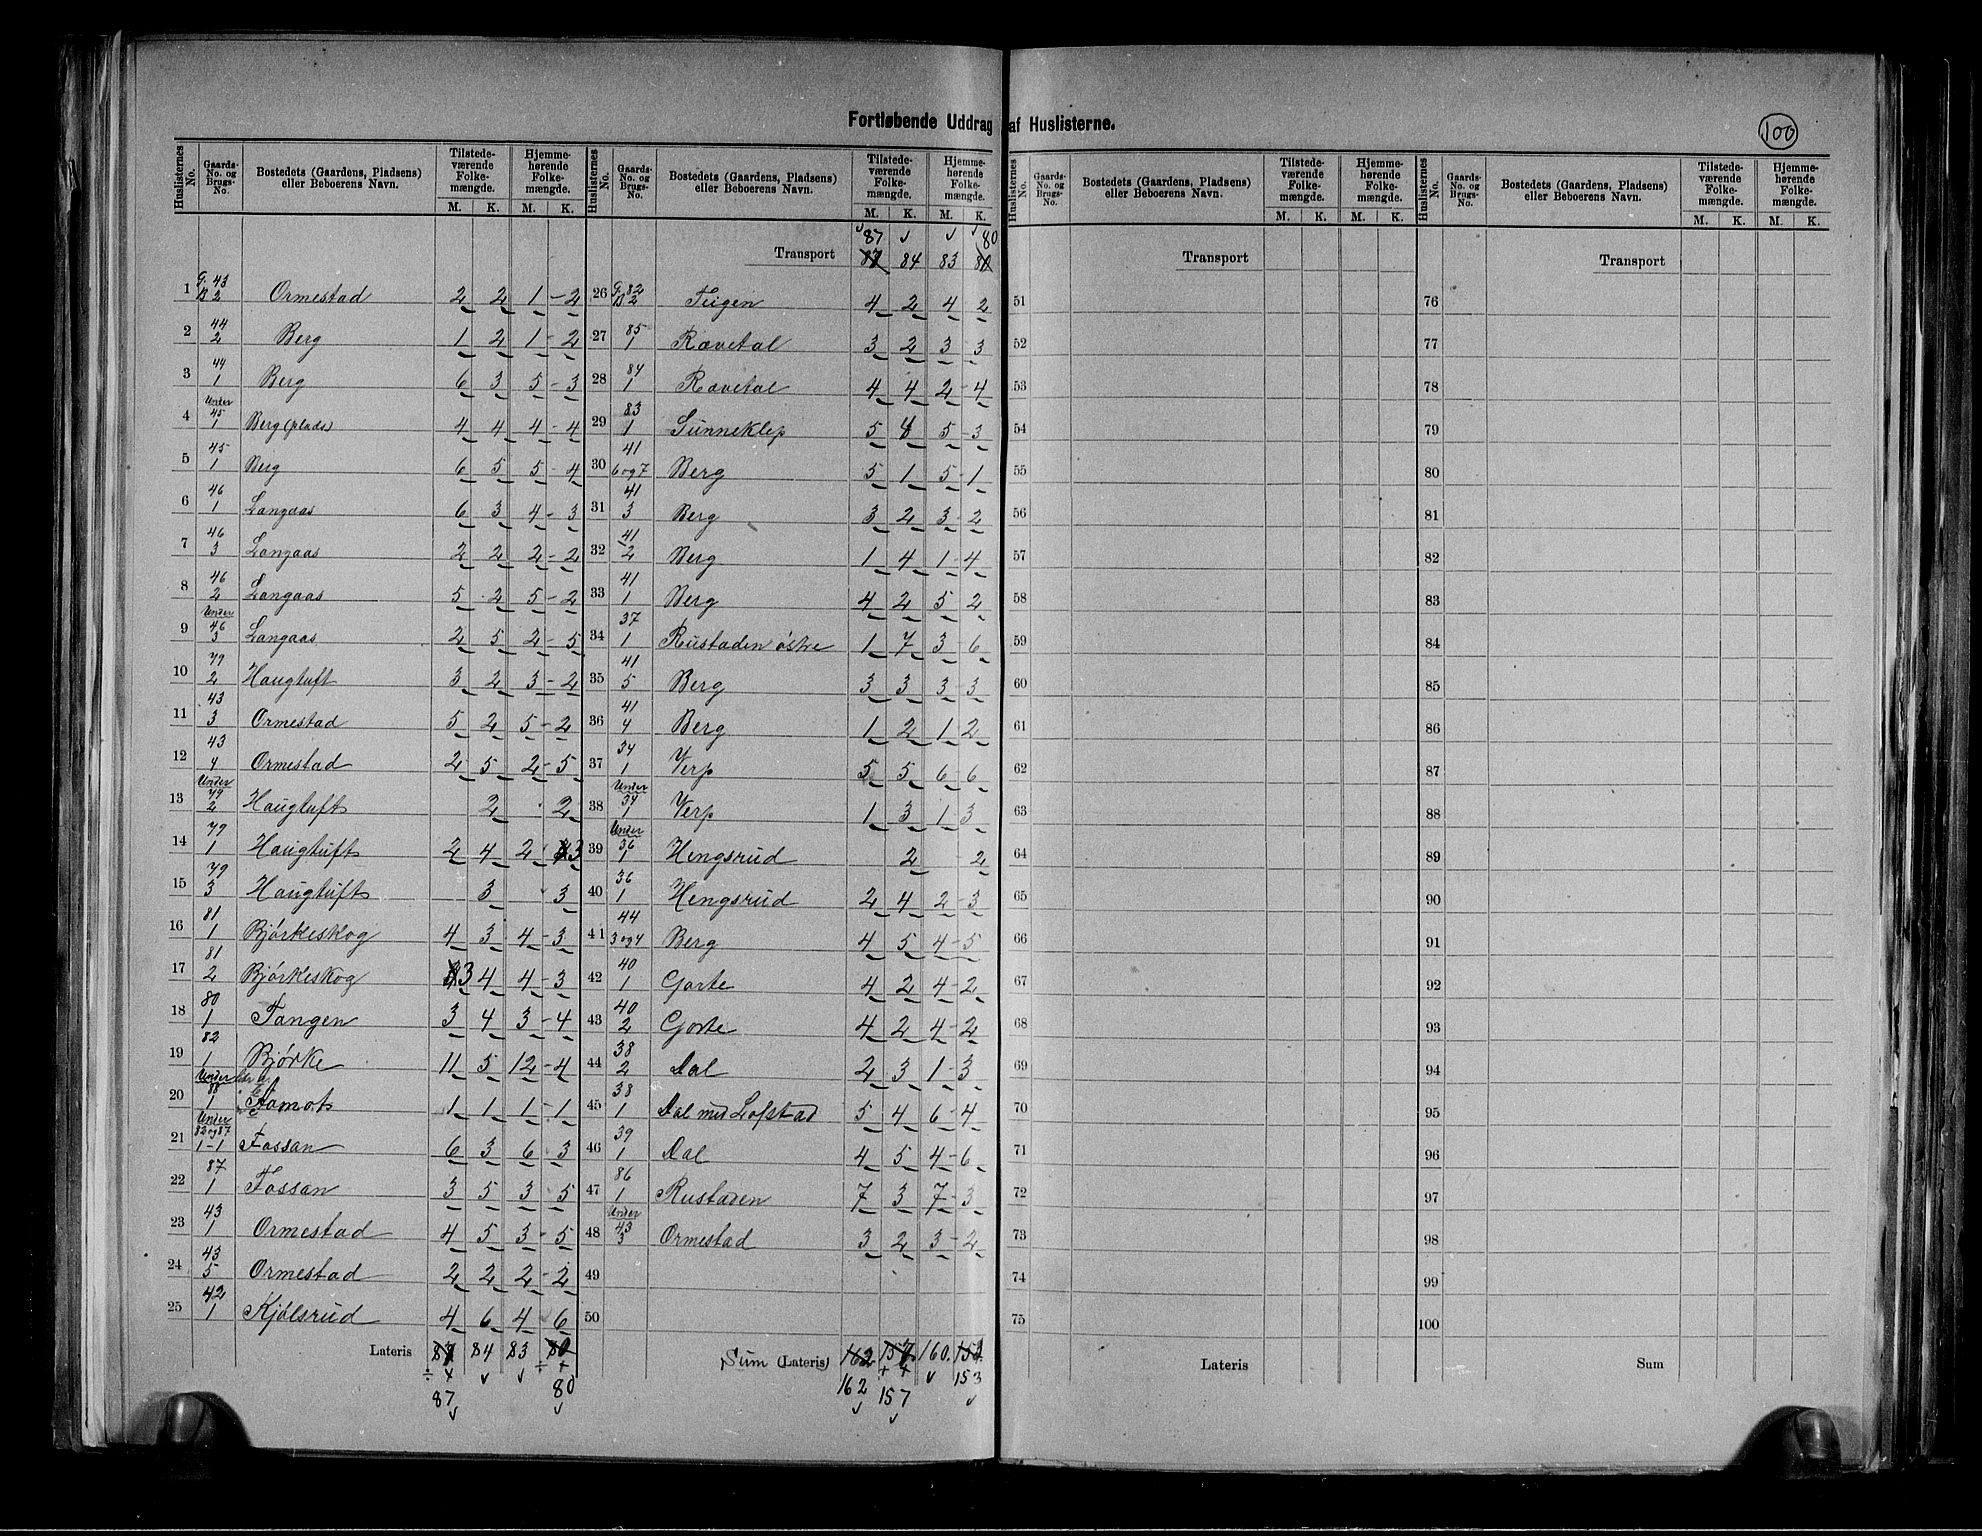 Fortløbende Uddrag af Huslisterne.
100
Huslisternes No. | Gaards-No. og Brugs-No. | Bostedets (Gaardens, Pladsens) eller Beboerens Navn. | Tilstedeværende Folkemængde. M. K. | Hjemmehørende Folkemængde. M. K.
1 G. 43 B 2 Ormestad 2 2 1 - 2
2 44 2 Berg 1 2 1 - 2
3 44 1 Berg 6 3 5 - 3
4 Under 45 1 Berg (plads) 4 4 4 - 4
5 45 1 Berg 6 5 5 - 4
6 46 1 Langaas 6 3 4 - 3
7 46 3 Langaas 2 2 2 - 2
8 46 2 Langaas 5 2 5 - 2
9 Under 46 3 Langaas 2 5 2 - 5
10 79 2 Haugtuft 3 2 3 - 2
11 43 3 Ormestad 5 2 5 - 2
12 43 4 Ormestad 2 5 2 - 5
13 Under 79 2 Haugtuft 2 2
14 79 1 Haugtuft 2 4 2 3
15 79 3 Haugtuft 3 3
16 81 1 Bjørkeskog 4 3 4 - 3
17 81 2 Bjørkeskog 3 4 4 - 3
18 80 1 Tangen 3 4 3 - 4
19 82 1 Bjørke 11 5 12 - 4
20 Under 1 Aamot 1 1 1 - 1
21 Under 82 og 87 1 - 1 Fossan 6 3 6 3
22 87 1 Fossan 3 5 3 - 5
23 43 1 Ormestad 4 5 3 - 5
24 43 5 Ormestad 2 2 2 - 2
25 42 1 Kjølsrud 4 6 4 6
Lateris 87 84 83 80
87 80
Huslisternes No. | Gaards-No. og Brugs-No. | Bostedets (Gaardens, Pladsens) eller Beboerens Navn. | Tilstedeværende Folkemængde. M. K. | Hjemmehørende Folkemængde. M. K.
87 80
Transport 84 83
26 G. 82 B 2 Teigen 4 2 4 2
27 85 1 Rævetal 3 2 3 3
28 84 1 Rævetal 4 4 2 - 4
29 83 1 Sunneklep 5 5 - 3
30 41 6 og 7 Berg 5 1 5 - 1
31 41 3 Berg 3 2 3 - 2
32 41 2 Berg 1 4 1 - 4
33 41 1 Berg 4 2 5 2
34 37 1 Rustaden østre 1 7 3 6
35 41 5 Berg 3 3 3 - 3
36 41 4 Berg 1 2 1 2
37 34 1 Verp 5 5 6 - 6
38 Under 34 1 Verp 1 3 1 3
39 Under 36 1 Hengsrud 2 2
40 36 1 Hengsrud 2 4 2 - 3
41 44 3 og 4 Berg 4 5 4 - 5
42 40 1 Garte 4 2 4 - 2
43 40 2 Garte 4 2 4 - 2
44 38 2 Dal 2 3 1 - 3
45 38 1 Dal med Lofstad 5 4 6 - 4
46 39 1 Dal 4 5 4 - 6
47 86 1 Rustaden 7 3 7 - 3
48 Under 43 3 Ormestad 3 2 3 - 2
49
50
Sum (Lateris) 162 157 160.
162 157 153
Huslisternes No. | Gaards-No. og Brugs-No. | Bostedets (Gaardens, Pladsens) eller Beboerens Navn. | Tilstedeværende Folkemængde. M. K. | Hjemmehørende Folkemængde. M. K.
Transport
51
52
53
54
55
56
57
58
59
60
61
62
63
64
65
66
67
68
69
70
71
72
73
74
75
Lateris
Huslisternes No. | Gaards-No. og Brugs-No. | Bostedets (Gaardens, Pladsens) eller Beboerens Navn. | Tilstedeværende Folkemængde. M. K. | Hjemmehørende Folkemængde. M. K.
Transport
76
77
78
79
80
81
82
83
84
85
86
87
88
89
90
91
92
93
94
95
96
97
98
99
100
Sum